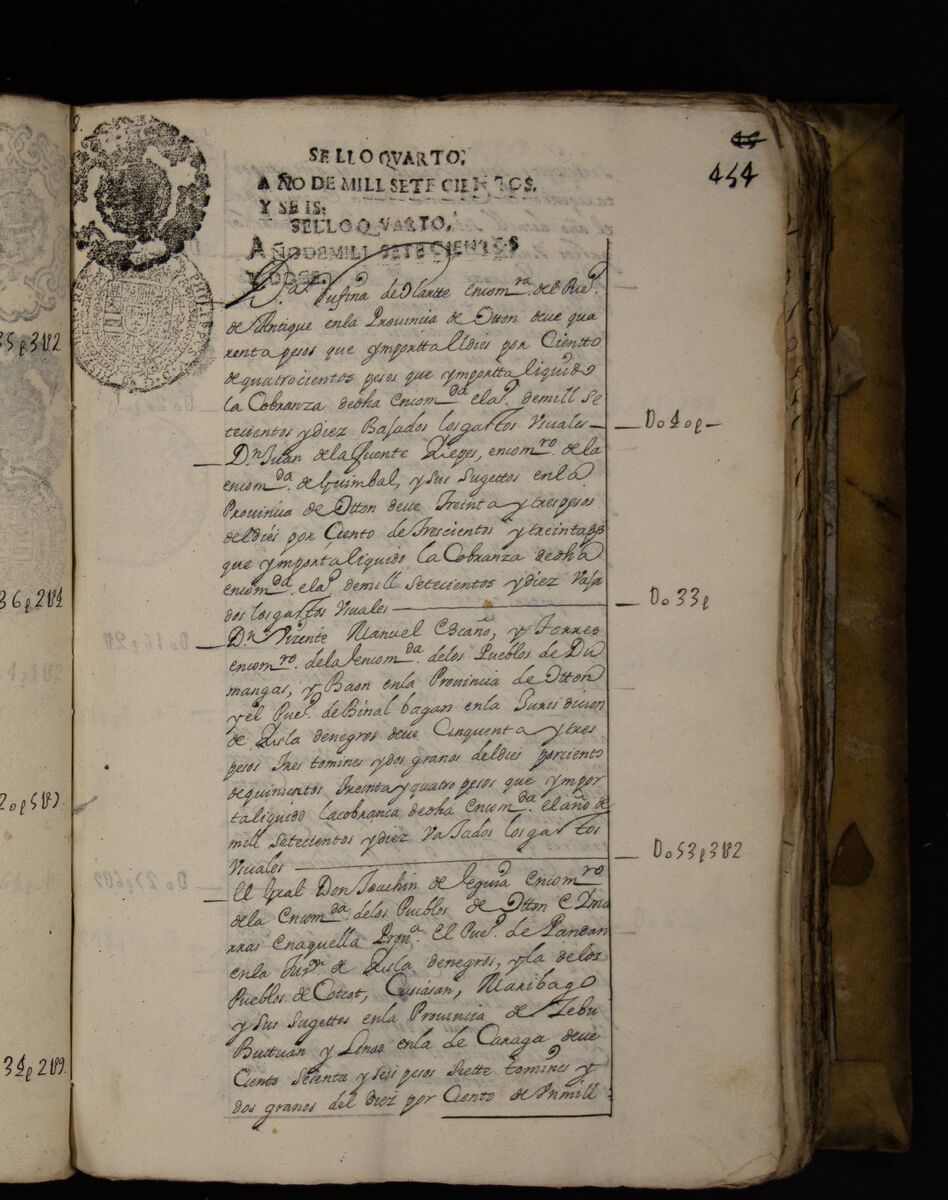 454
SELLO QVARTO,
AÑO DE MILL SETECIENTOS,
Y SEIS.
SELLO QVARTO,
AÑO DE MILL SETECIENTOS
Y DOSE.
D.ª Rufina de Olartte encom.ra del Pue.º
de Antique enla Provincia de Otton deve qua
renta pesos que ymportta el dies por Cientto
de quatrocientos pesos que ymportta liquido
la Cobranza dedha encom.da el a.º de mill se
tecientos y diez Bajados los gastos Vsuales
Do40p
D.n Juan de la Fuente Yepes, encom.ro de la
encom.da de Guimbal, y sus sugettos en la
Provincia de Otton deve treinta y tres pesos
del dies por Ciento de trescientos y treinta ps
que ymporta liquido la Cobranza de dha
encom.da el a.º de mill setecientos y diez Vaja
dos los gastos Vsuales
Do33p
D.n Vizente Manuel Escaño, y Torres
encom.ro de la encom.da de los Pueblos de Du
mangas, y Baon en la Provincia de Otton
y el Pue.º de Binalbagan en la Jurisdicion
de Ysla de negros deve Cinquenta y tres
pesos tres tomines y dos granos del dies por ciento
de quinientos treinta y quatro pesos que ympor
ta liquido la cobranza de dha encom.da el año de
mill setecientos y diez Vajados los gastos
Vsuales
Do53p3U2
El Gral Don Joachin de Leguia encom.ro
de la Encom.da de los Pueblos de Otton
en aquella Prou.a El Pue.º de Pandan
en la Jur.n de Ysla de negros, y la de los
Pueblos de Cotcot, Maribago
y sus sugettos en la Provincia de Zebu
Buttuan y Linao en la de Caraga deve
Ciento sesenta y seis pesos siette tomines y
dos granos del diez por Ciento de Vn mill
35p3U2
36p2U4
20p5U
34p2U9